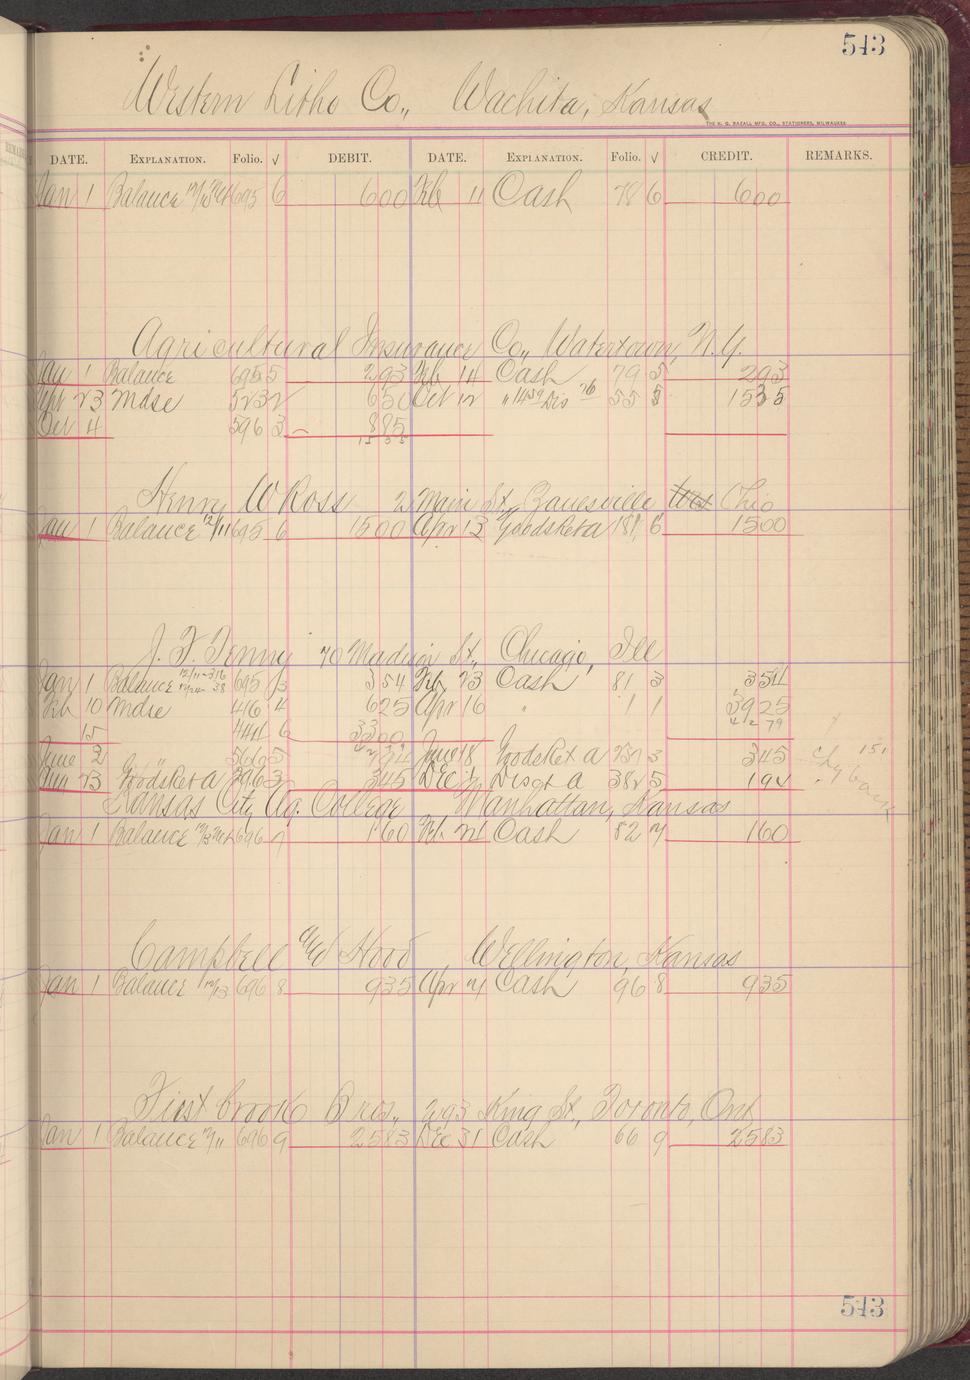 543
Western Litho Co., Wachita, Kansas
THE H. G. RAZALL MFG. CO., STATIONERS, MILWAUKEE
DATE. EXPLANATION. Folio. √ DEBIT. DATE. EXPLANATION. Folio. √ CREDIT. REMARKS.
Jan 1 Balance 695 6 600 Feb 11 Cash 78 6 600
Agricultural Insurance Co., Watertown, N.Y.
Jan 1 Balance 695 5 293 Feb 14 Cash 79 5 293
Apr 23 Mdse 523 650 Oct 12 " Dis 55 1535
Oct 4 596 3 885
1535
Henry W Ross 2 Main St., Zanesville Ohio
Jan 1 Balance 12/11 695 6 1500 Apr 13 Goodsreta 181 6 1500
J. F. Tenny 70 Madison St., Chicago, Ill
Jan 1 Balance 695 3 354 Feb 23 Cash 81 3 354
Feb 10 Mdse 416 4 625 Apr 16 " 1 1 3925
15 441 6 3300 4279
June 2 " 566 5 June 18 Goodsreta 3 345
23 Goodsreta 296 3 345 Dec Discta 382 5 194
Kansas City Ag. College Manhattan, Kansas
Jan 1 Balance 696 7 160 Feb 24 Cash 82 7 160
Campbell and Hood Wellington, Kansas
Jan 1 Balance 12/13 696 8 935 Apr 4 Cash 96 8 935
First brook Bros., 293 King St., Toronto, Ont
Jan 1 Balance 696 9 2583 Dec 31 Cash 66 9 2583
543